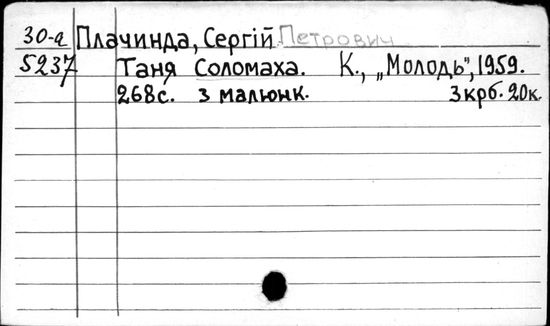 30-а Плачинда, Сергій Петрович
5237 Таня Соломаха. К., „Молодь", 1959.
268с. з малюнк. 3 крб. 20к.